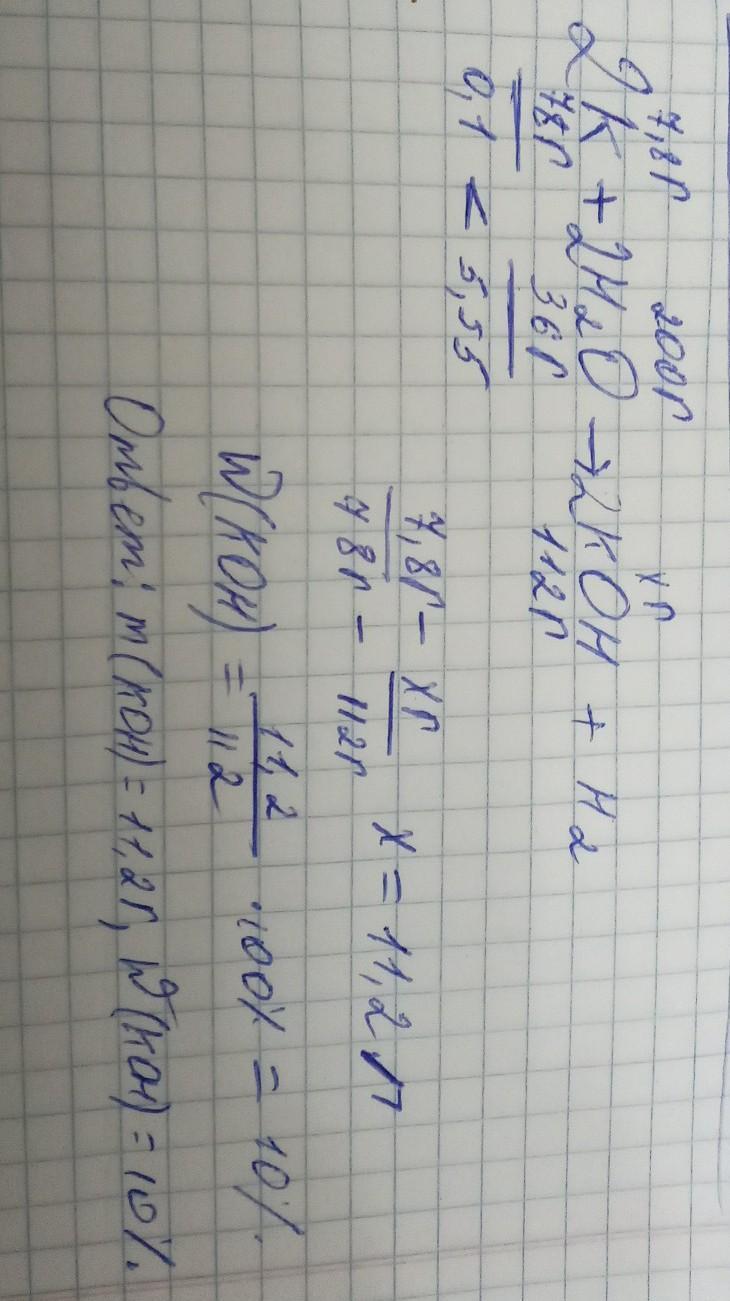 7,8г 200г xг
2K + 2H₂O → 2KOH + H₂
78г 36г 112г
0,1 < 5,55
7,8г – xг
78г – 112г
x = 11,2 г
W(KOH) = 11,2 / 112 · 100% = 10%
Ответ: m(KOH) = 11,2г, W(KOH) = 10%.